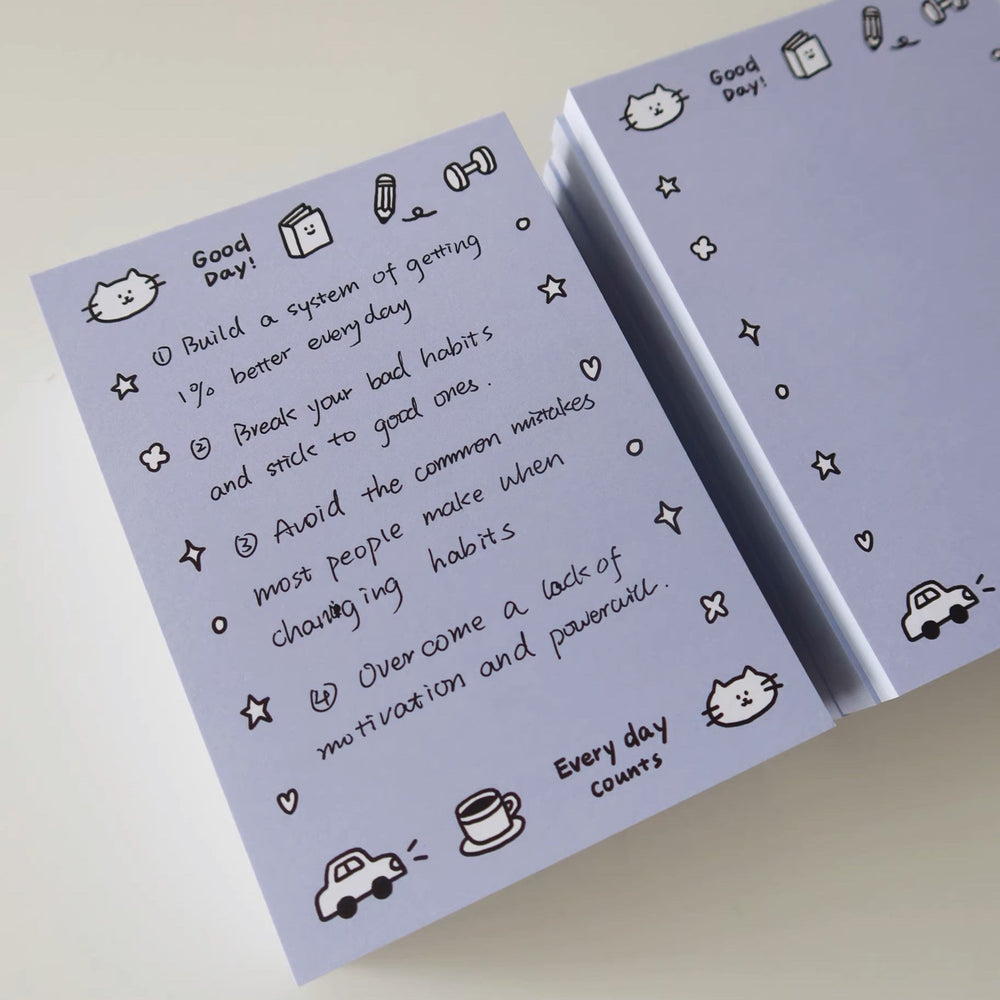 Good
Day!
① Build a system of getting
1% better every day
② Break your bad habits
and stick to good ones.
③ Avoid the common mistakes
most people make when
changing habits
④ Overcome a lack of
motivation and powerwill.
Every day
counts
Good
Day!